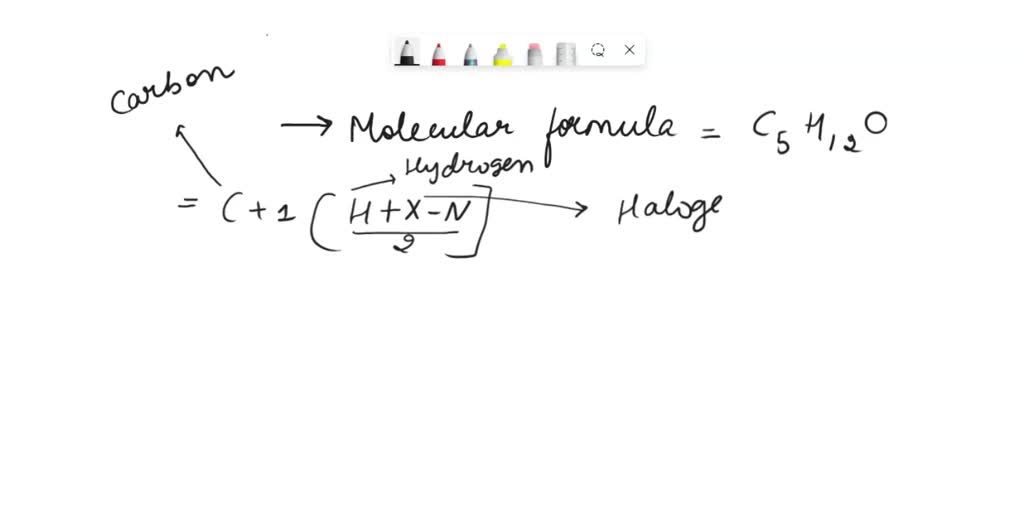 Carbon
→ Molecular formula = C₅H₁₂O
→ Hydrogen
= C+1 ( H+X-N / 2 ] → Haloge